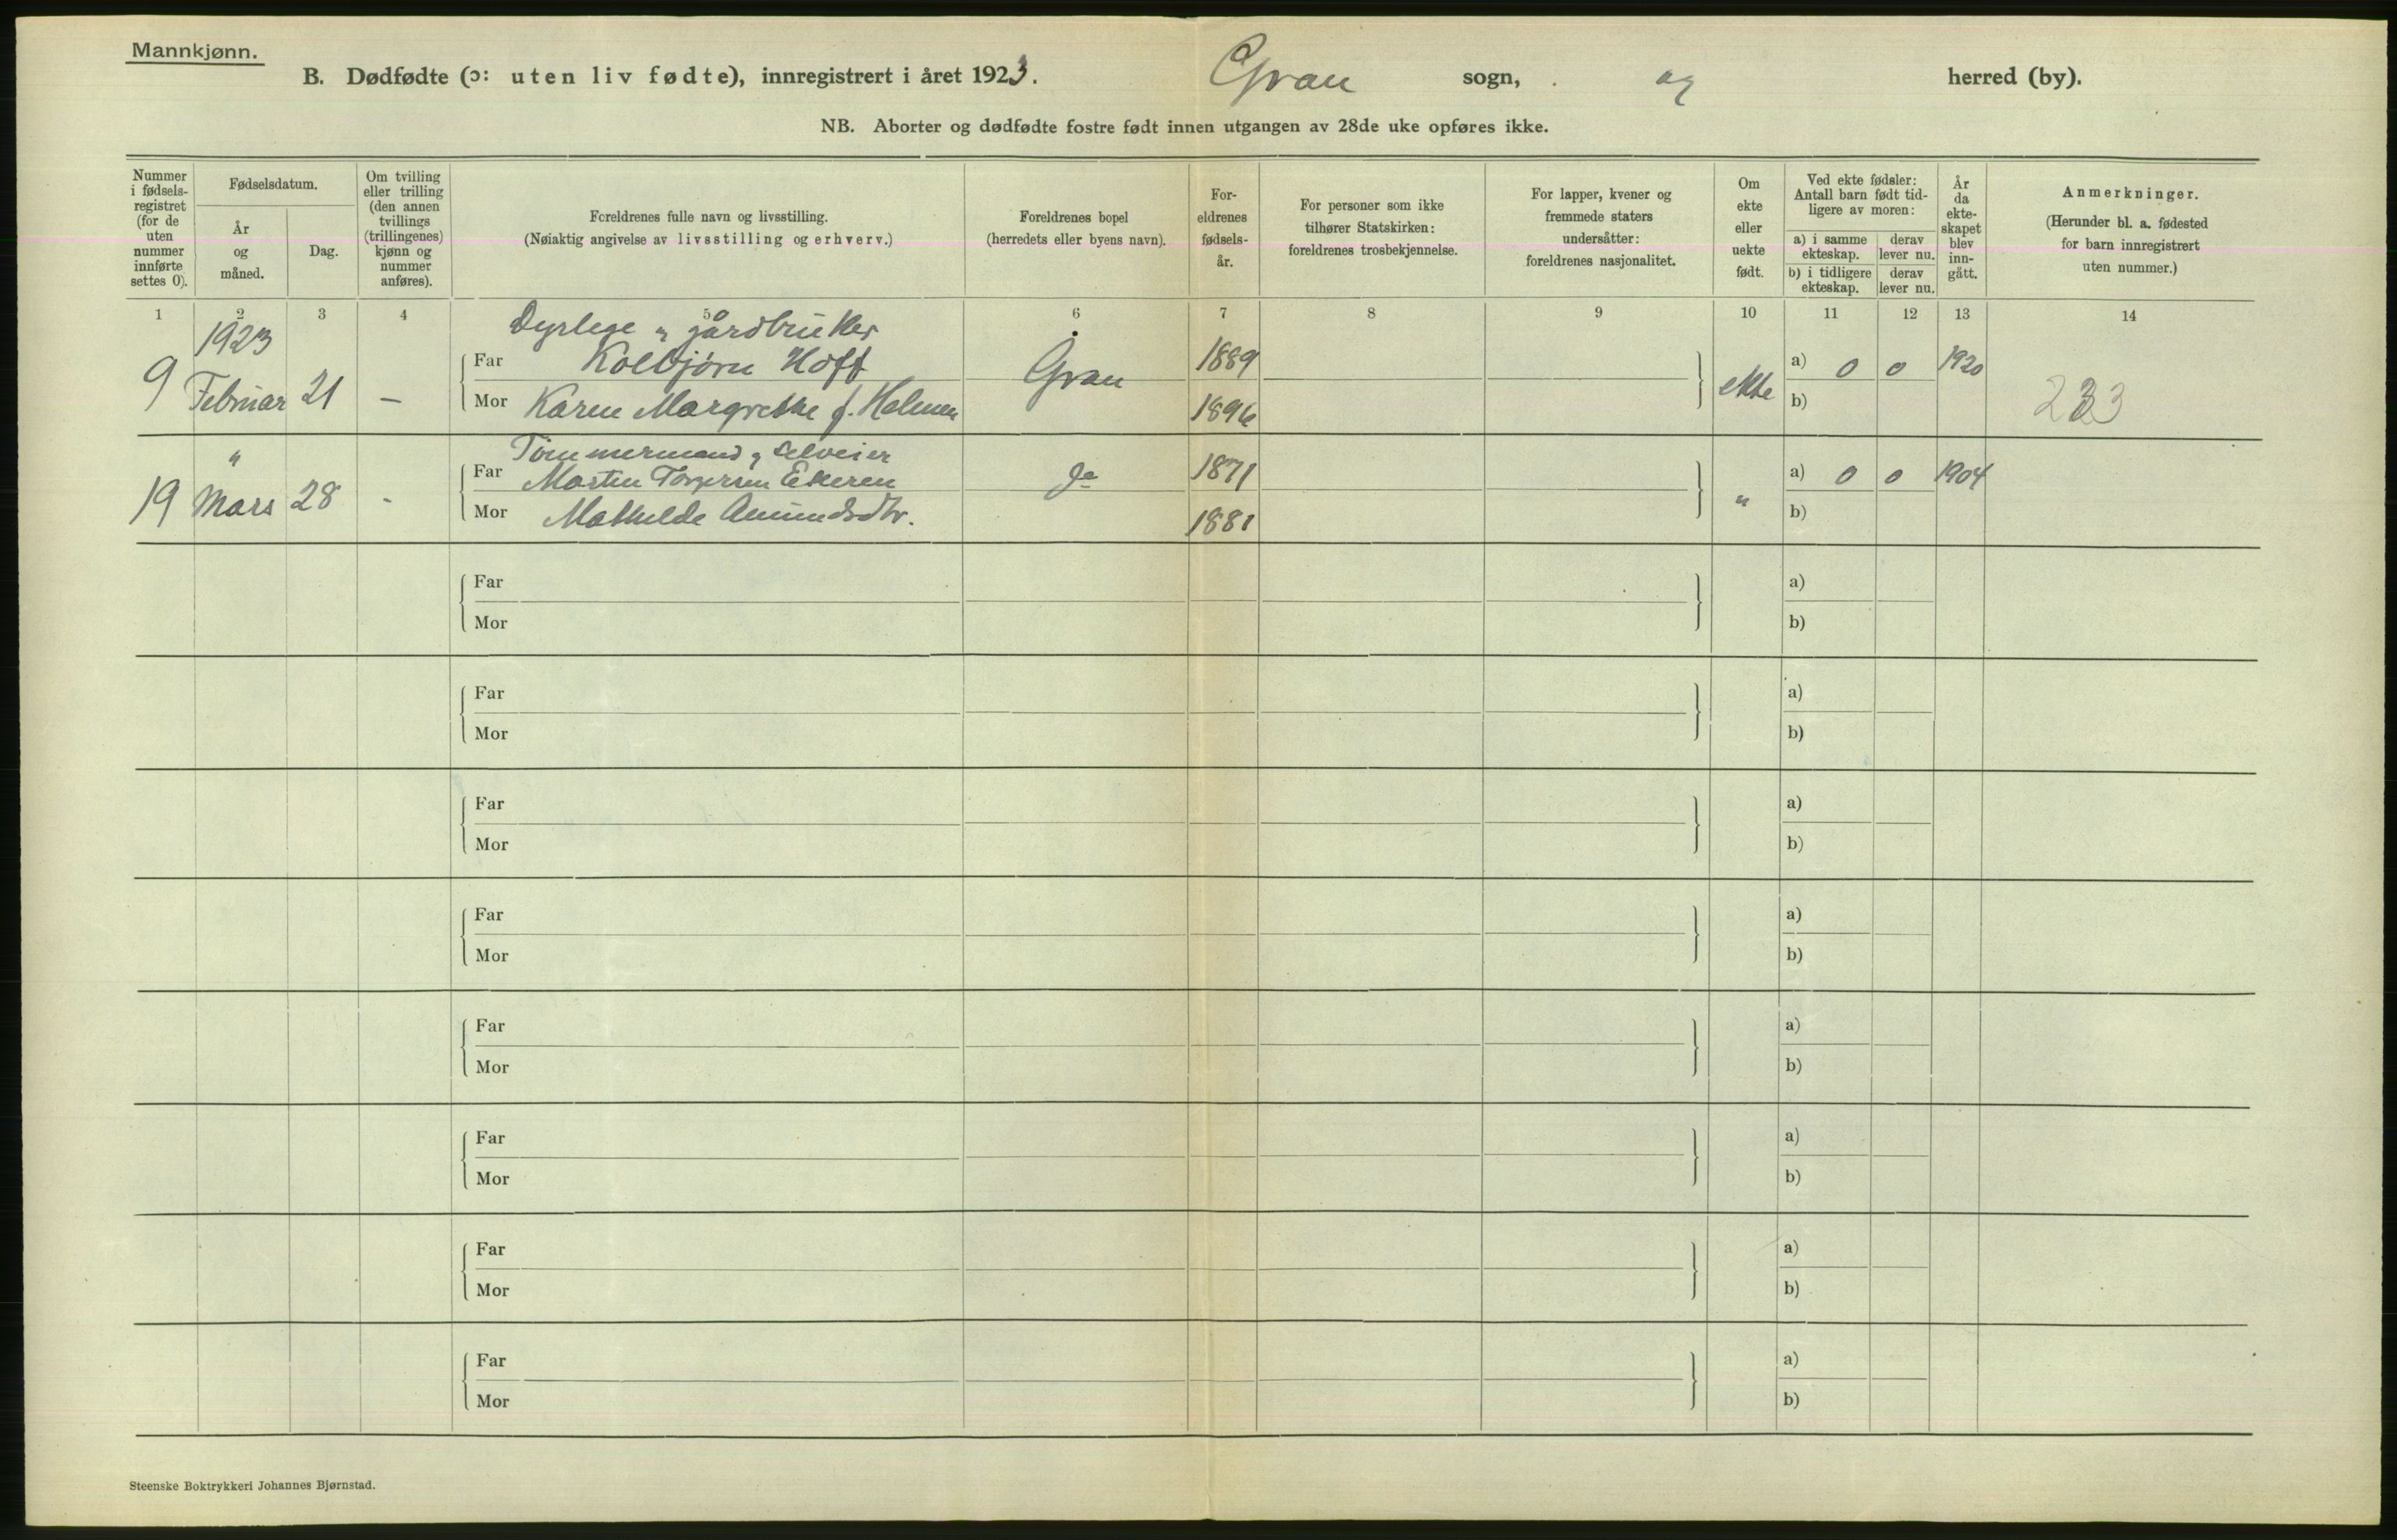 Mannkjønn.
B. Dødfødte (ɔ: uten liv fødte), innregistrert i året 1923. Gran sogn, og herred (by).
NB. Aborter og dødfødte fostre født innen utgangen av 28de uke opføres ikke.
Nummer i fødsels-registret (for de uten nummer innførte settes 0).
Fødselsdatum.
År og måned.
Dag.
Om tvilling eller trilling (den annen tvillings (trillingenes) kjønn og nummer anføres).
Foreldrenes fulle navn og livsstilling.
(Nøiaktig angivelse av livsstilling og erhverv.)
Foreldrenes bopel
(herredets eller byens navn).
For-eldrenes fødsels-år.
For personer som ikke tilhører Statskirken: foreldrenes trosbekjennelse.
For lapper, kvener og fremmede staters undersåtter: foreldrenes nasjonalitet.
Om ekte eller uekte født.
Ved ekte fødsler: Antall barn født tid-ligere av moren:
a) i samme ekteskap.
derav lever nu.
b) i tidligere ekteskap.
derav lever nu.
År da ekte-skapet blev inn-gått.
Anmerkninger.
(Herunder bl. a. fødested for barn innregistrert uten nummer.)
1 2 3 4 5 6 7 8 9 10 11 12 13 14
1923 Dyrlege og gårdbruker
Far Kolbjørn Hoff 1889 a) 0 0 1920
9 Februar 21 – Gran ekte 233
Mor Karen Margrethe f. Holmen 1896 b)
" Tømmermand og selveier
Far Martin Torgersen Ekeren do 1871 a) 0 0 1904
19 Mars 28 - "
Mor Mathilde Amundsdtr. 1881 b)
Far a)
Mor b)
Far a)
Mor b)
Far a)
Mor b)
Far a)
Mor b)
Far a)
Mor b)
Far a)
Mor b)
Far a)
Mor b)
Far a)
Mor b)
Steenske Boktrykkeri Johannes Bjørnstad.